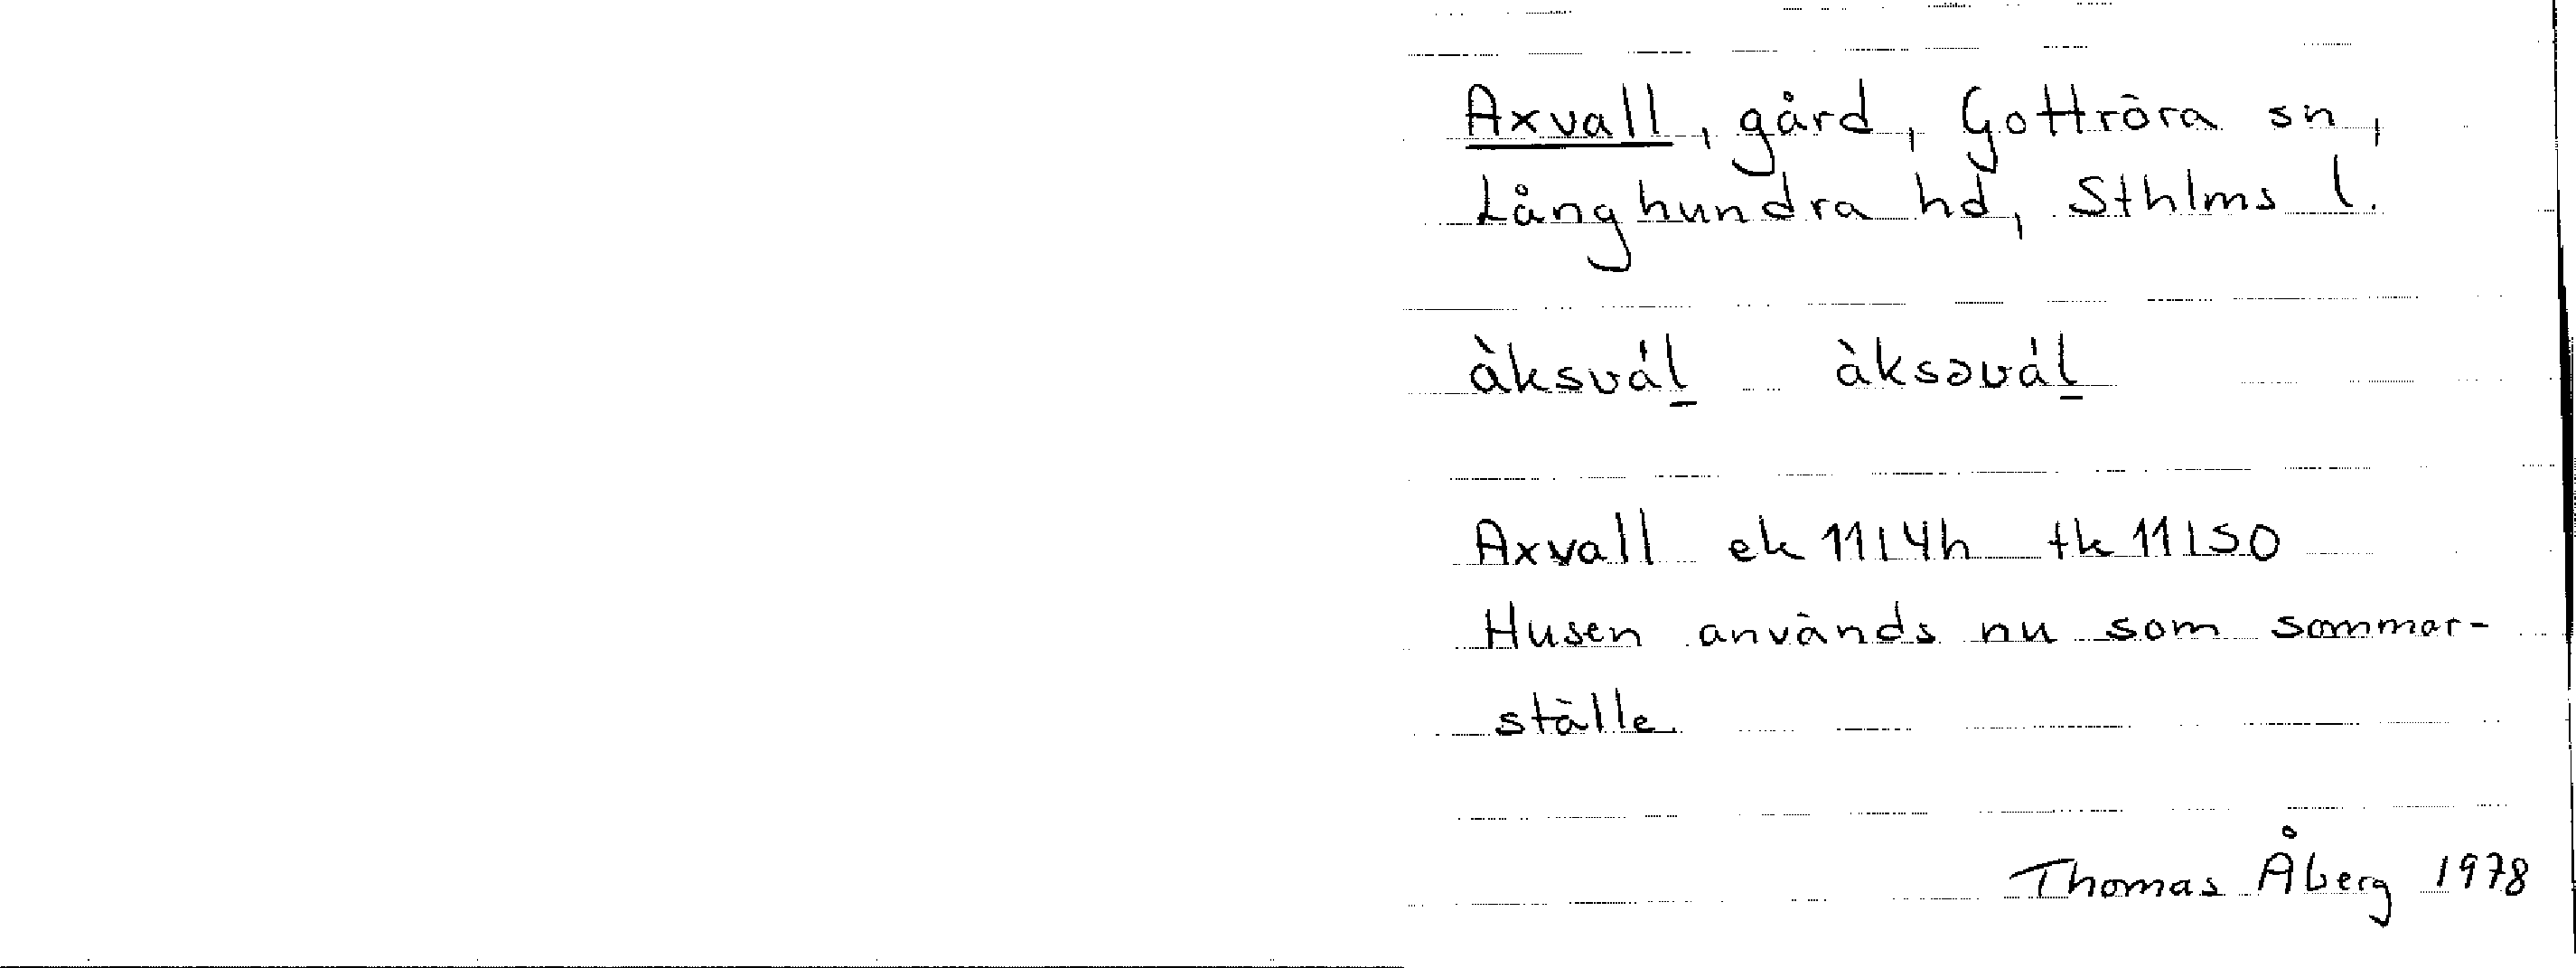 Axvall, gård, Gottröra sn,
Långhundra hd, Sthlms l.
àksvál̲ àksəvál̲
Axvall ek 11I4h tk 11I50
Husen används nu som sommar-
ställe.
Thomas Åberg 1978